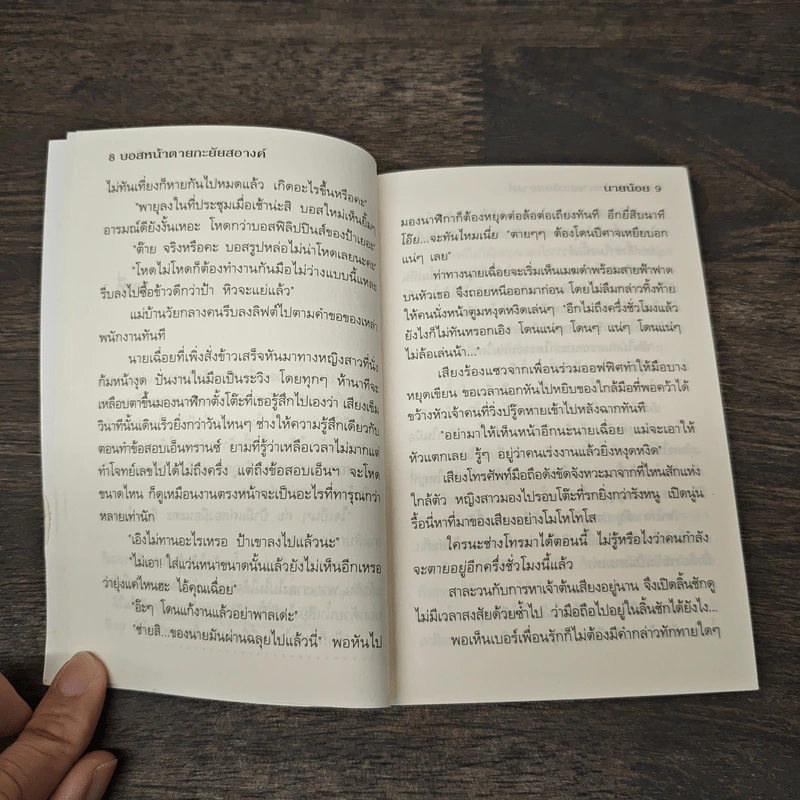 8 บอสหน้าตายกะยัยสอางค์
ไม่ทันเที่ยงก็หายกันไปหมดแล้ว เกิดอะไรขึ้นหรือคะ"
"พายุลงในที่ประชุมเมื่อเช้าน่ะสิ บอสใหม่เห็นยิ้มๆ
อารมณ์ดียังงั้นเหอะ โหดกว่าบอสฟิลิปปินส์ของป้าเยอะ"
"ต๊าย จริงหรือคะ บอสรูปหล่อไม่น่าโหดเลยนะคะ"
"โหดไม่โหดก็ต้องทำงานกันมือไม่ว่างแบบนี้แหละ
รีบลงไปซื้อข้าวดีกว่าป้า หิวจะแย่แล้ว"
แม่บ้านวัยกลางคนรีบลงลิฟต์ไปตามคำขอของเหล่า
พนักงานทันที
นายเฉื่อยที่เพิ่งสั่งข้าวเสร็จหันมาทางหญิงสาวที่นั่ง
ก้มหน้างุด ปั่นงานในมือเป็นระวิง โดยทุกๆ ห้านาทีจะ
เหลือบตาขึ้นมองนาฬิกาตั้งโต๊ะที่เธอรู้สึกไปเองว่า เสียงเข็ม
วินาทีนั้นเดินเร็วยิ่งกว่าวันไหนๆ ช่างให้ความรู้สึกเดียวกับ
ตอนทำข้อสอบเอ็นทรานซ์ ยามที่รู้ว่าเหลือเวลาไม่มากแต่
ทำโจทย์เลขไปได้ไม่ถึงครึ่ง แต่ถึงข้อสอบเอ็นฯ จะโหด
ขนาดไหน ก็ดูเหมือนงานตรงหน้าจะเป็นอะไรที่ทารุณกว่า
หลายเท่านัก
"เอิงไม่ทานอะไรเหรอ ป้าเขาลงไปแล้วนะ"
"ไม่เอา! ใส่แว่นหนาขนาดนั้นแล้วยังไม่เห็นอีกเหรอ
ว่ายุ่งแค่ไหนฮะ ไอ้คุณเฉื่อย"
"อ๊ะๆ โดนแก้งานแล้วอย่าพาลเด่ะ"
"ช่ายสิ...ของนายมันผ่านฉลุยไปแล้วนี่" พอหันไป
นายน้อย 9
มองนาฬิกาก็ต้องหยุดต่อล้อต่อเถียงทันที อีกยี่สิบนาที
โอ๊ย...จะทันไหมเนี่ย "ตายๆๆ ต้องโดนปีศาจเหยียบอก
แน่ๆ เลย"
ท่าทางนายเฉื่อยจะเริ่มเห็นเมฆดำพร้อมสายฟ้าฟาด
บนหัวเธอ จึงถอยหนีออกมาก่อน โดยไม่ลืมกล่าวทิ้งท้าย
ให้คนนั่งหน้าตูมหงุดหงิดเล่นๆ "อีกไม่ถึงครึ่งชั่วโมงแล้ว
ยังไงก็ไม่ทันหรอกเอิง โดนแน่ๆ โดนๆ แน่ๆ โดนแน่ๆ
ไม่ล้อเล่นน้า..."
เสียงร้องแซวจากเพื่อนร่วมออฟฟิศทำให้มือบาง
หยุดเขียน ขอเวลานอกหันไปหยิบของใกล้มือที่พอคว้าได้
ขว้างหัวเจ้าคนที่วิ่งปรู๊ดหายเข้าไปหลังฉากทันที
"อย่ามาให้เห็นหน้าอีกนะนายเฉื่อย แม่จะเอาให้
หัวแตกเลย รู้ๆ อยู่ว่าคนเร่งงานแล้วยิ่งหงุดหงิด"
เสียงโทรศัพท์มือถือดังขัดจังหวะมาจากที่ไหนสักแห่ง
ใกล้ตัว หญิงสาวมองไปรอบโต๊ะที่รกยิ่งกว่ารังหนู เปิดนู่น
รื้อนี่หาที่มาของเสียงอย่างโมโหโทโส
ใครนะช่างโทรมาได้ตอนนี้ ไม่รู้หรือไงว่าคนกำลัง
จะตายอยู่อีกครึ่งชั่วโมงนี้แล้ว
สาละวนกับการหาเจ้าต้นเสียงอยู่นาน จึงเปิดลิ้นชักดู
ไม่มีเวลาสงสัยด้วยซ้ำไป ว่ามือถือไปอยู่ในลิ้นชักได้ยังไง...
พอเห็นเบอร์เพื่อนรักก็ไม่ต้องมีคำกล่าวทักทายใดๆ